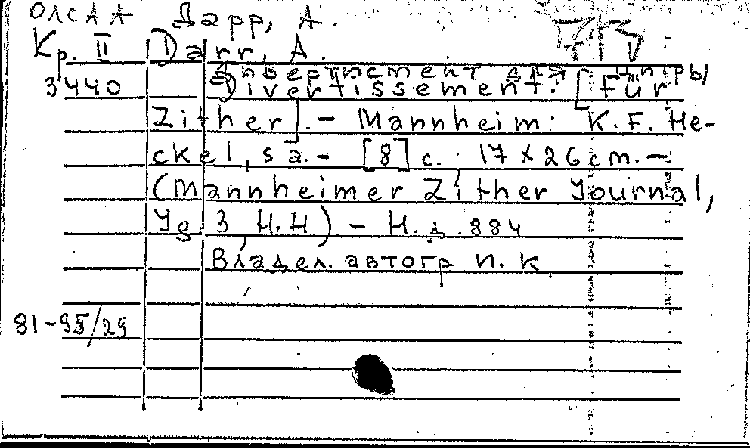 ОЛСАА Дарр, А.
Кр. II Darr, A.
Дивертисмент для цитры
3440 Divertissement: [für
Zither]. - Mannheim: K.F. He-
ckel, s a. - [8] c. : 17 x 26 cm. -
(Mannheimer Zither Journal,
Jg 3, H.H) - Н.д. 884
Владел. автогр И. К
81-95/29